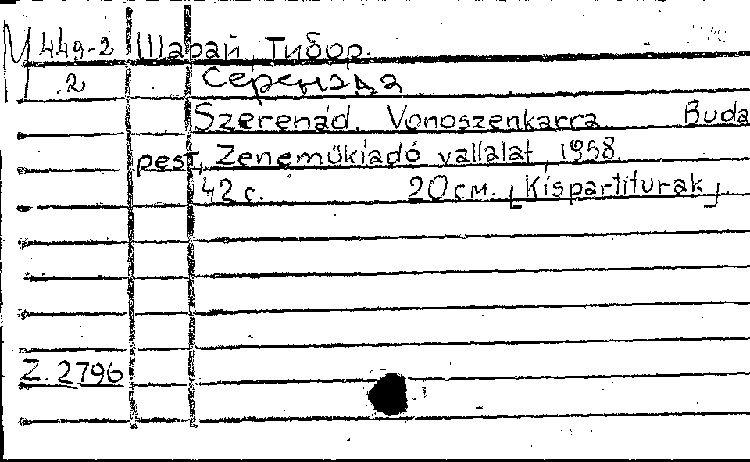 М 449-2 Шарай, Тибор.
2 Серенада
Szerenád. Vonoszenkarra Buda
pest, Zeneműkiadó vallalat, 1958.
42 с. 20 см. [Kispartiturak]
Z. 2796